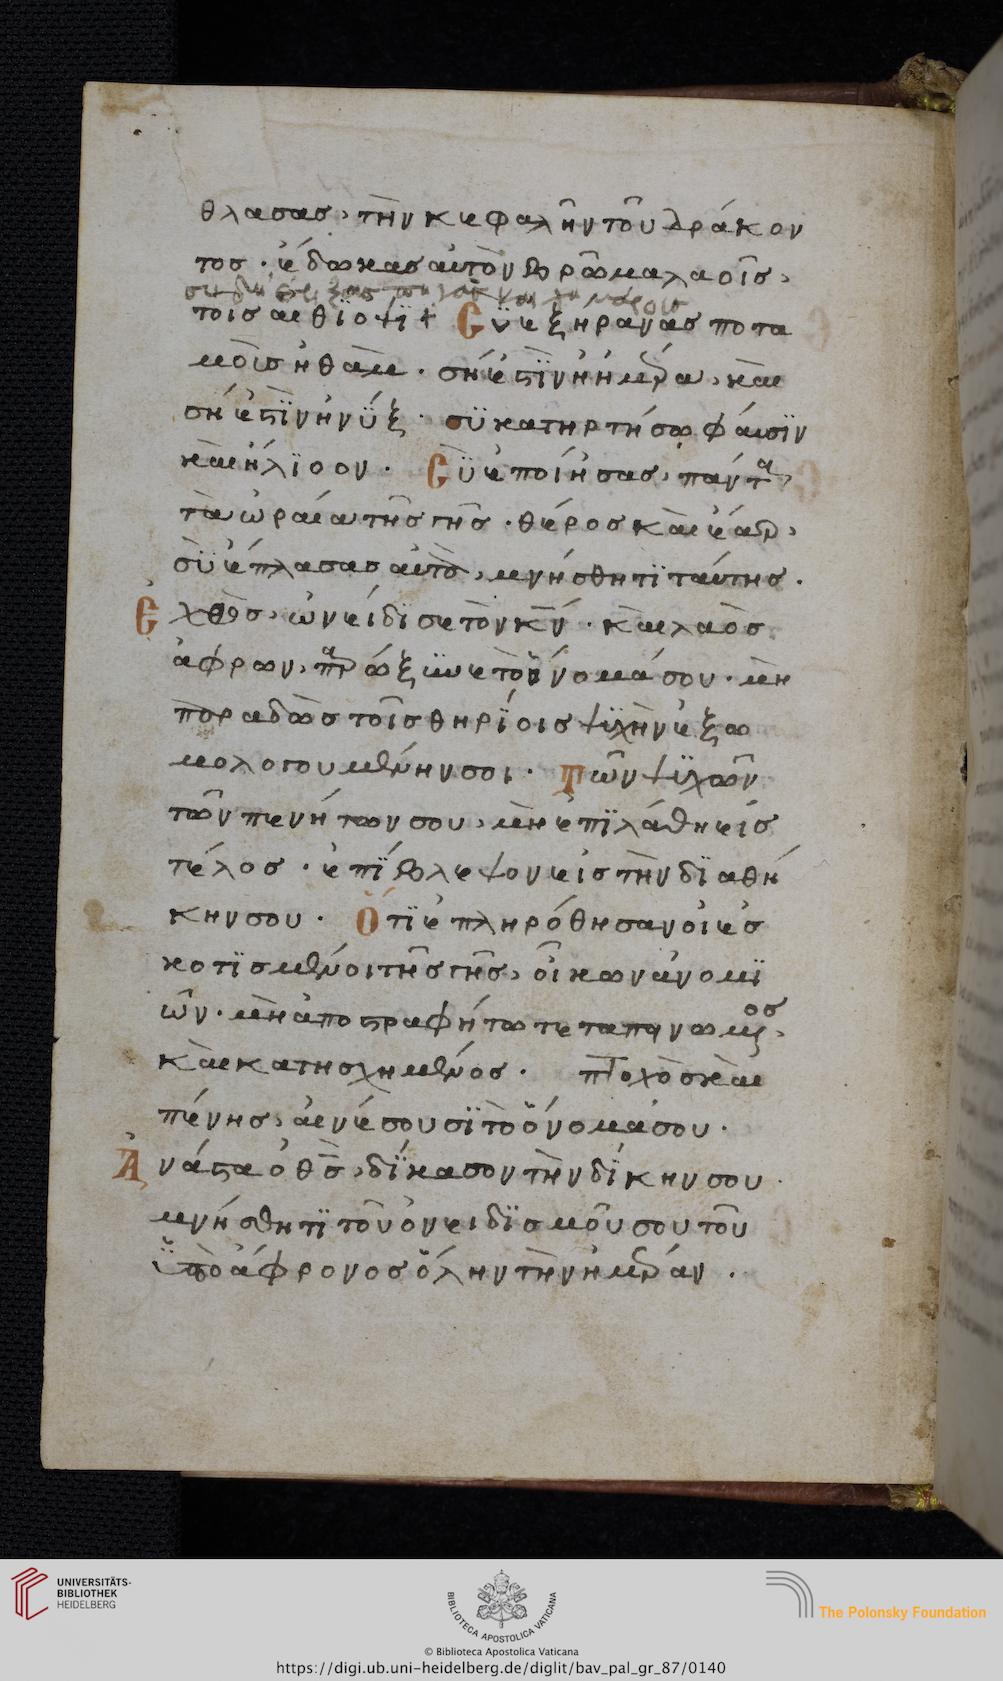 θλασας, τὴν κεφαλῆν τοῦ δράκον
τος· ἐ´δωκας αὐτὸν βρῶμα λαοῖς,
τοις αιθϊοψϊ+ Cϋ ἐξηρανας ποτα
μοῖς ἠθὰμ · σή ἐϛϊν ἡ ἡμέρα, καὶ
σή ἐϛϊν ἡ νϋ´ξ · σϋ κατηρτήσω φάυσϊν
καὶ ἡ´λϊοον · Cϋ ἐποίησας, πάντα,
τὰ ὡραία τῆς γῆς · θέρος καὶ ἐ´αρ,
σϋ ἐ´πλασας αὐτὸ, μνήσθητϊ ταύτης ·
Ἐχθρὸς, ὠνείδϊσε τὸν κ̅ν̅ · καὶ λαὸς
ἀ´φρων, παρώξϋνε τὸ ὄνομά σου · μὴ
παραδῶς τοῖς θηρϊ´οις ψϋχὴν ἐξω
μολογουμένην σοι · Τῶν ψϋχῶν
τῶν πενήτων σου, μὴ ἐπϊλάθη εἰς
τέλος · ἐπϊ´βλεψον εἰς τὴν δϊαθή
κην σου · Ὅτϊ ἐπληρόθησαν οἱ ἐσ
κοτϊσμένοι τῆς γῆς, οἴκων ἀνομϊ
ῶν · μὴ ἀποϛραφήτω τεταπηνωμένος,
καὶ κατησχημένος · πτοχὸς καὶ
πένης, αἰνέσουσϊ τὸ ὄνομά σου ·
Ἀνάϛα ὁ θ̅ς̅, δϊ´κασον τὴν δϊ´κην σου ·
μνήσθητϊ τοῦ ὀνειδϊσμοῦ σου τοῦ
ϋ῾πὸ ἀ´φρονος ὅλην τὴν ἡμέραν ·
UNIVERSITÄTS-
BIBLIOTHEK
HEIDELBERG
BIBLIOTECA APOSTOLICA VATICANA
The Polonsky Foundation
© Biblioteca Apostolica Vaticana
https://digi.ub.uni-heidelberg.de/diglit/bav_pal_gr_87/0140